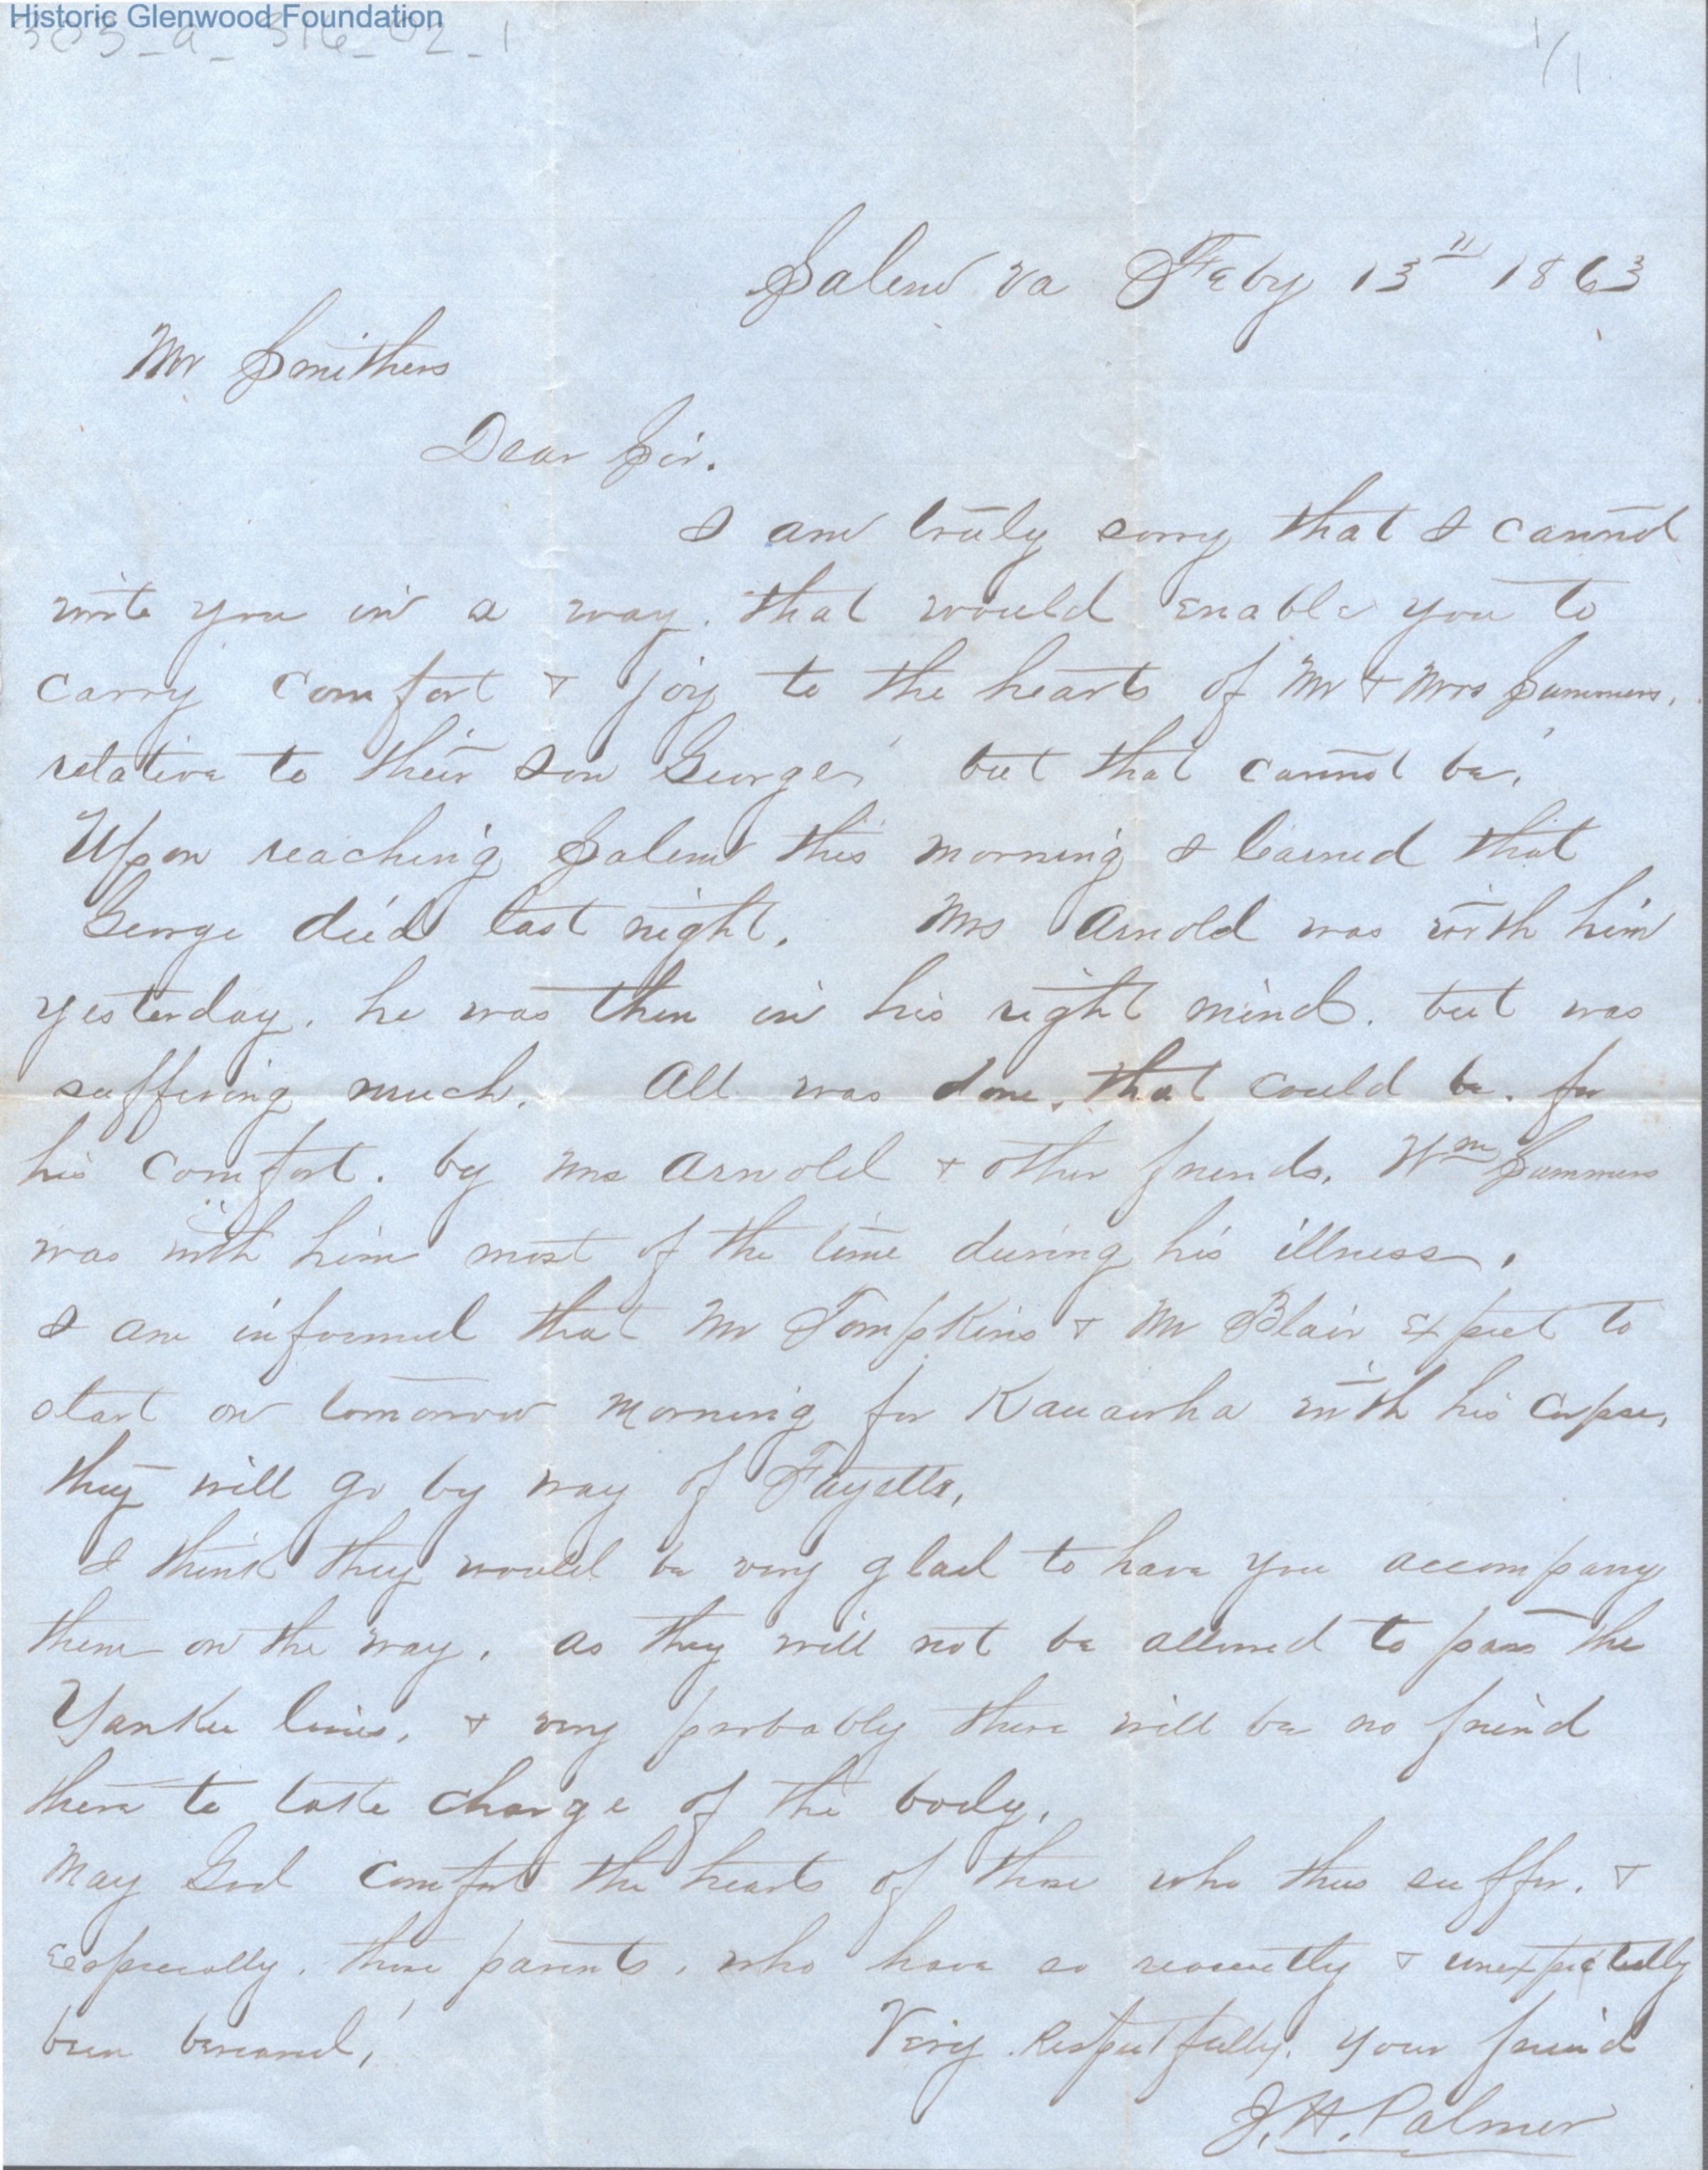 Historic Glenwood Foundation
303_a_316_02_1
1/1
Salem Va Feby 13" 1863
Mr Smithers
Dear Sir.
I am truly sorry that I cannot
write you in a way. that would enable you to
carry comfort & joy to the hearts of Mr & Mrs Summers,
relative to their son George, but that cannot be,
Upon reaching Salem this morning I learned that
George died last night. Mrs Arnold was with him
yesterday. he was then in his right mind. but was
suffering much. All was done, that could be. for
his comfort. by Mrs Arnold & other friends. Wm Summers
was with him most of the time during his illness.
I am informed that Mr Tompkins & Mr Blair expect to
start on tomorrow morning for Kanawha with his corpse,
they will go by way of Fayette,
I think they would be very glad to have you accompany
them on the way. as they will not be allowed to pass the
Yankee lines, & very probably there will be no friend
there to take charge of the body,
May God comfort the hearts of those who thus suffer. &
especially. those parents. who have so recently & unexpectedly
been bereaved,
Very Respectfully. Your friend
J. H. Palmer